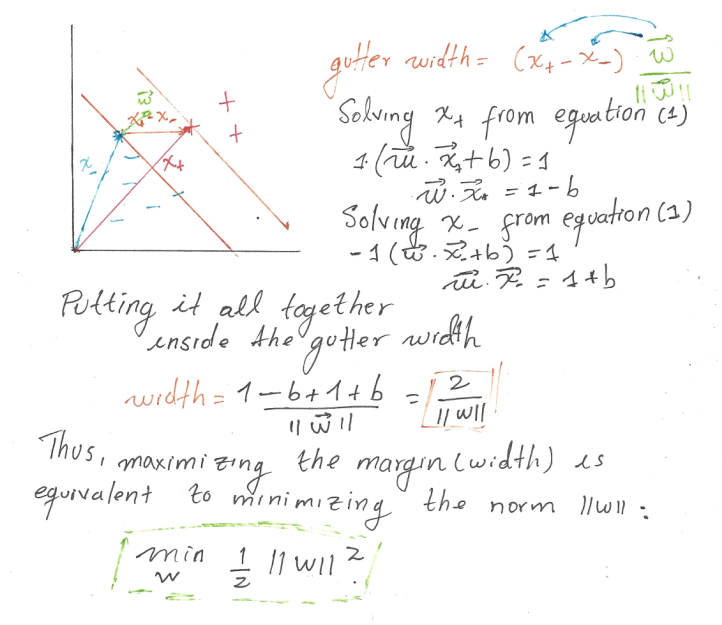 w⃗
x₊ - x₋
+
+
+
x₋
x₊
gutter width = (x₊ - x₋) · w⃗ / ||w⃗||
Solving x₊ from equation (1)
1·(w⃗ · x⃗₊ + b) = 1
w⃗ · x⃗₊ = 1 - b
Solving x₋ from equation (1)
-1 (w⃗ · x⃗₋ + b) = 1
w⃗ · x⃗₋ = 1 + b
Putting it all together
inside the gutter width
width = 1 - b + 1 + b / ||w⃗|| = 2 / ||w||
Thus, maximizing the margin (width) is
equivalent to minimizing the norm ||w|| :
min w 1/2 ||w||².